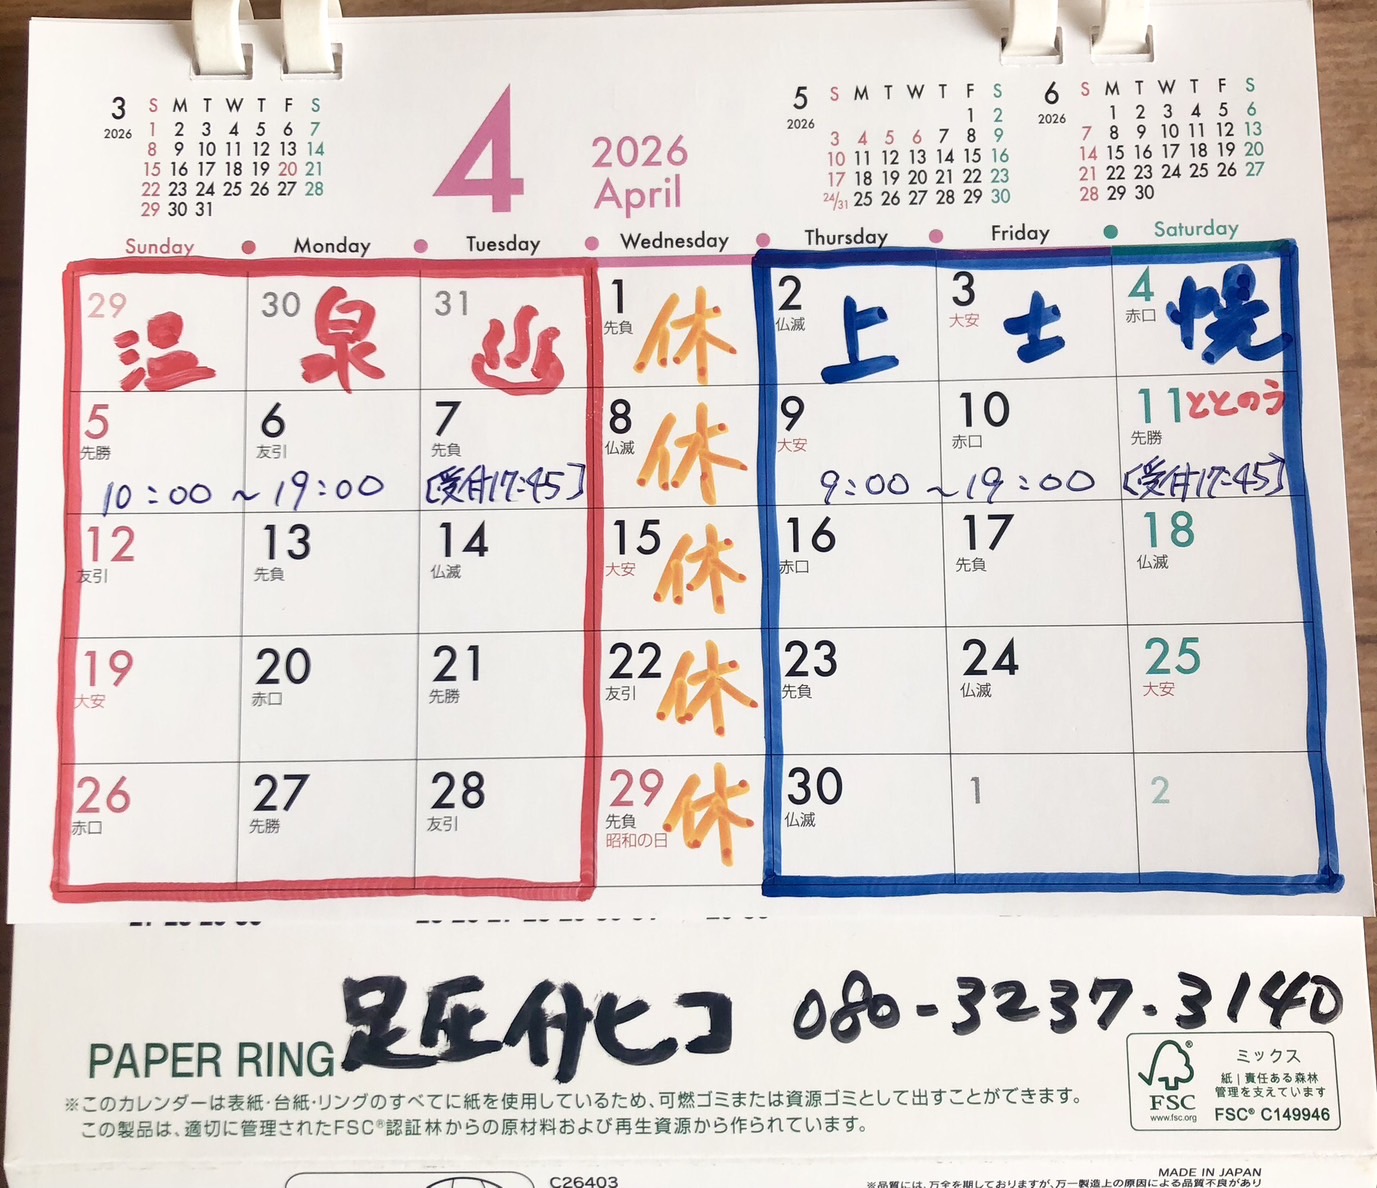 3 2026
S M T W T F S
1 2 3 4 5 6 7
8 9 10 11 12 13 14
15 16 17 18 19 20 21
22 23 24 25 26 27 28
29 30 31
4 2026 April
5 2026
S M T W T F S
1 2
3 4 5 6 7 8 9
10 11 12 13 14 15 16
17 18 19 20 21 22 23
24/31 25 26 27 28 29 30
6 2026
S M T W T F S
1 2 3 4 5 6
7 8 9 10 11 12 13
14 15 16 17 18 19 20
21 22 23 24 25 26 27
28 29 30
Sunday Monday Tuesday Wednesday Thursday Friday Saturday
29 30 31 1 2 3 4
先負 仏滅 大安 赤口
温 泉 休 上 士 幌
5 6 7 8 9 10 11 ととのう
先勝 友引 先負 仏滅 大安 赤口 先勝
休
10:00~19:00 [受付17:45] 9:00~19:00 [受付17:45]
12 13 14 15 16 17 18
友引 先負 仏滅 大安 赤口 先負 仏滅
休
19 20 21 22 23 24 25
大安 赤口 先勝 友引 先負 仏滅 大安
休
26 27 28 29 30 1 2
赤口 先勝 友引 先負 仏滅
昭和の日
休
足圧 ヒコ 080-3237-3140
PAPER RING
※このカレンダーは表紙・台紙・リングのすべてに紙を使用しているため、可燃ゴミまたは資源ゴミとして出すことができます。
この製品は、適切に管理されたFSC®認証林からの原材料および再生資源から作られています。
FSC
www.fsc.org
ミックス
紙|責任ある森林
管理を支えています
FSC® C149946
C26403
MADE IN JAPAN
※品質には、万全を期しておりますが、万一製造上の原因による品質不良があり